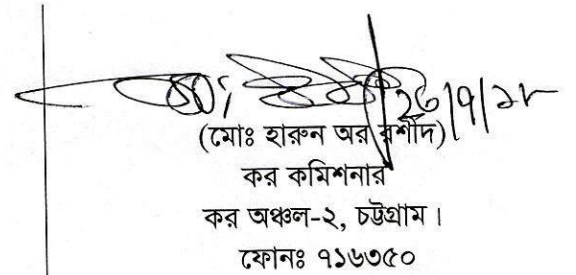 (মোঃ হারুন অর রশীদ)
কর কমিশনার
কর অঞ্চল-২, চট্টগ্রাম।
ফোনঃ ৭১৬৩৫০